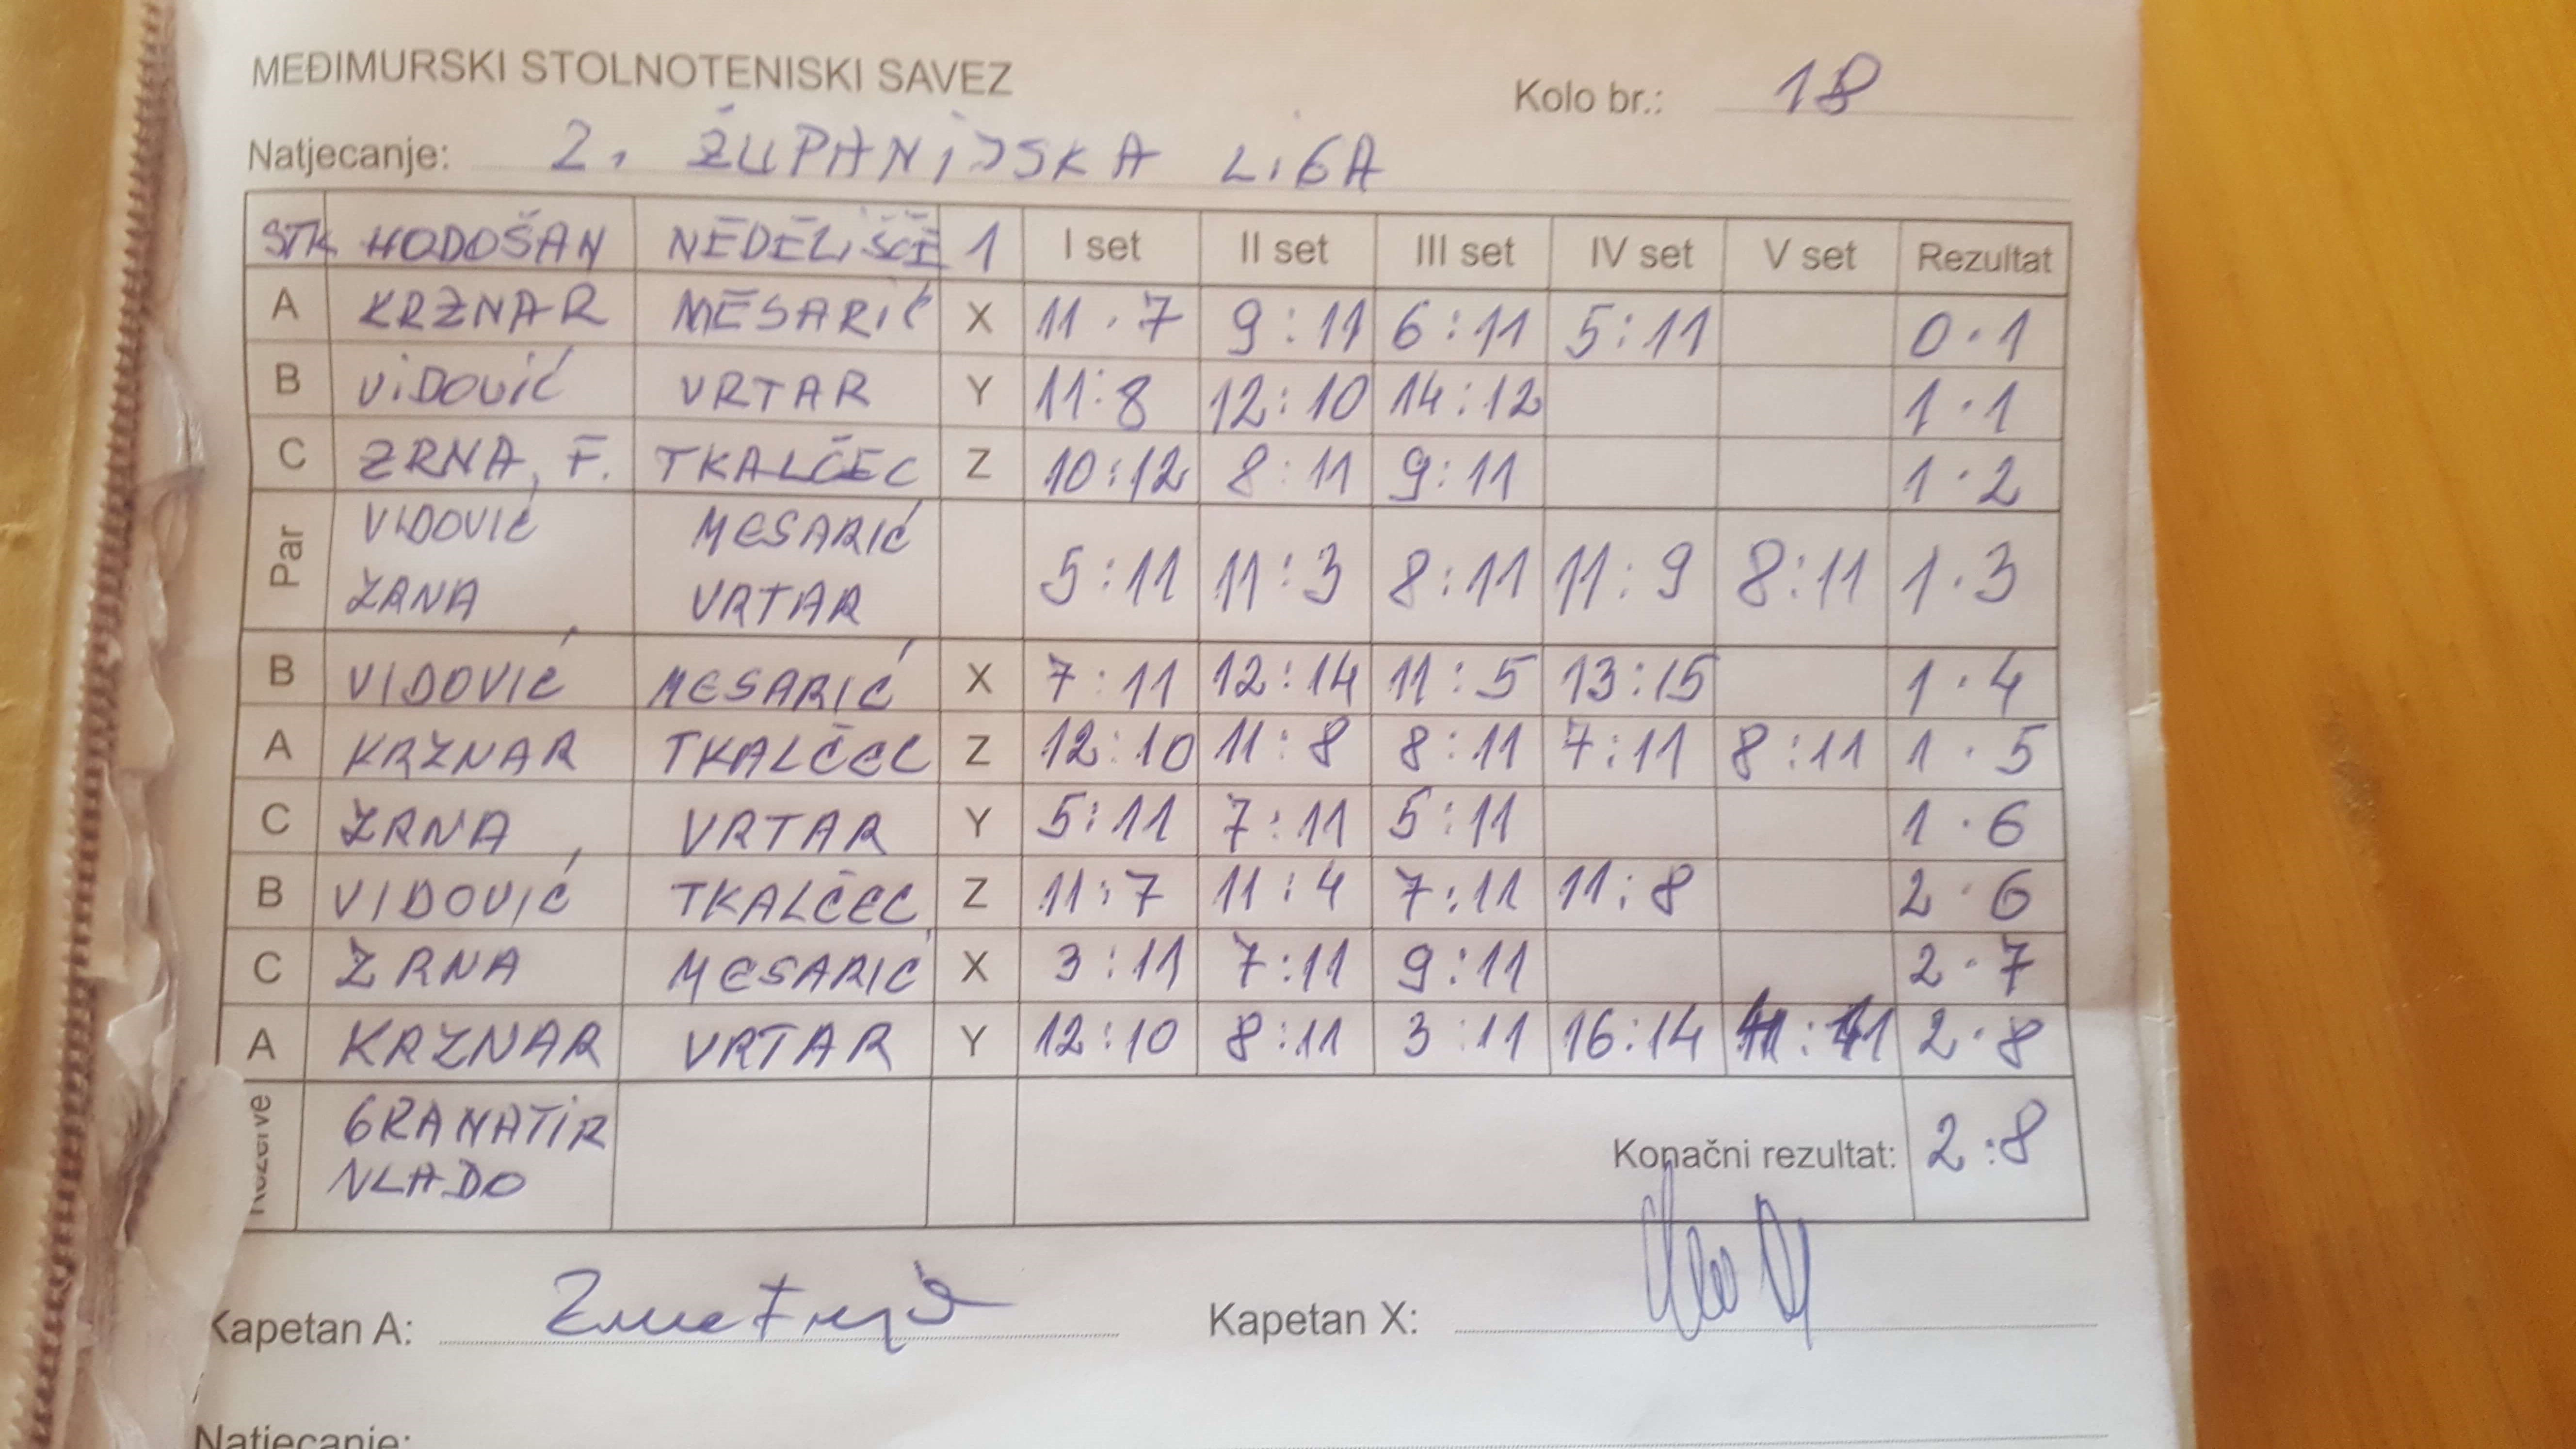 MEĐIMURSKI STOLNOTENISKI SAVEZ
Kolo br.: 18
Natjecanje: 2. ŽUPANIJSKA LIGA
STK HODOŠAN NEDELIŠĆE 1 I set II set III set IV set V set Rezultat
A KRZNAR MESARIĆ X 11·7 9:11 6:11 5:11 0·1
B VIDOVIĆ VRTAR Y 11:8 12:10 14:12 1·1
C ZRNA, F. TKALČEC Z 10:12 8:11 9:11 1·2
Par VIDOVIĆ MESARIĆ
ZRNA VRTAR 5:11 11:3 8:11 11:9 8:11 1·3
B VIDOVIĆ MESARIĆ X 7:11 12:14 11:5 13:15 1·4
A KRZNAR TKALČEC Z 12:10 11:8 8:11 7:11 8:11 1·5
C ZRNA VRTAR Y 5:11 7:11 5:11 1·6
B VIDOVIĆ TKALČEC Z 11:7 11:4 7:11 11:8 2·6
C ZRNA MESARIĆ X 3:11 7:11 9:11 2·7
A KRZNAR VRTAR Y 12:10 8:11 3:11 16:14 2·8
Rezerve GRANATIR
MLADO
Konačni rezultat: 2:8
Kapetan A: Kapetan X:
Natjecanje: